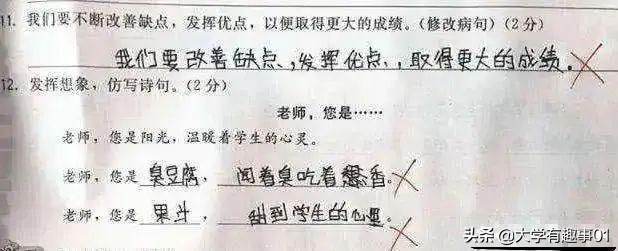 11. 我们要不断改善缺点，发挥优点，以便取得更大的成绩。(修改病句)(2分)
我们要改善缺点，发挥优点，取得更大的成绩。
12. 发挥想象，仿写诗句。(2分)
老师，您是……
老师，您是阳光，温暖着学生的心灵。
老师，您是 臭豆腐， 闻着臭吃着 香。
老师，您是 果斗， 甜到学生的心里。
头条 @大学有趣事01